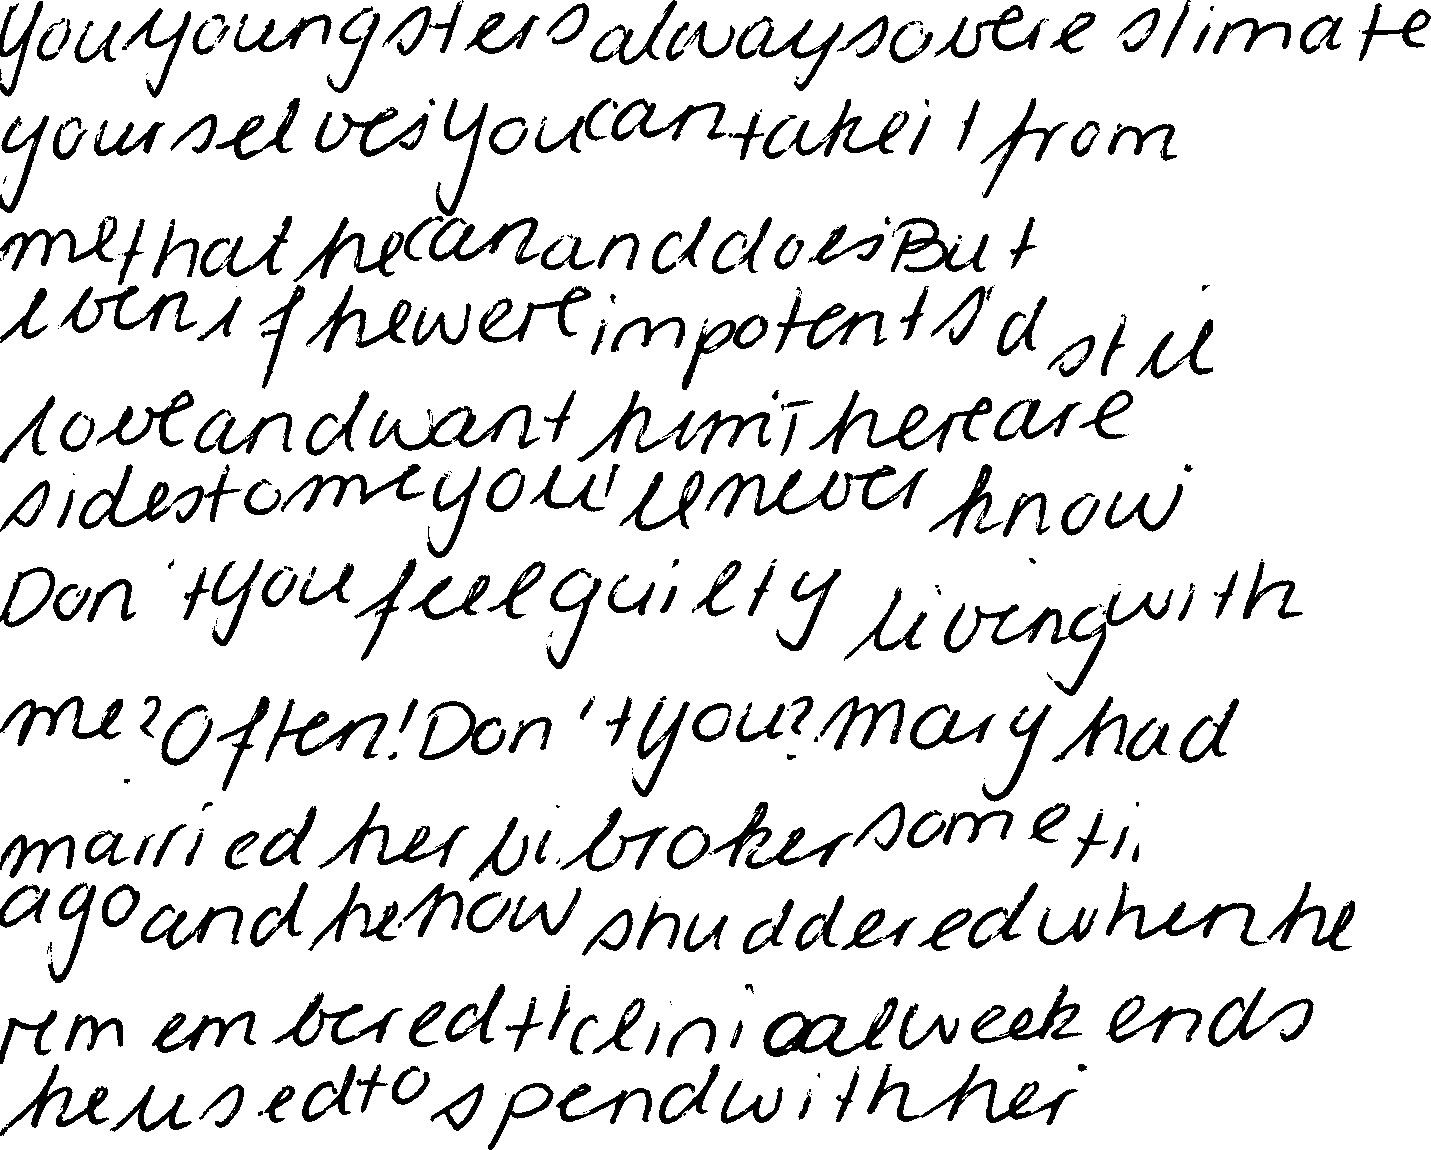 You youngsters always overestimate
yourselves. You can take it from
me, that he can and does. But
even if he were impotent I'd still
love and want him. There are
sides to me you'll never know.
Don't you feel guilty living with
me? Often! Don't you? Mary had
married her bi broker some
ago and he now shuddered when he
remembered clinical weekends
he used to spend with her